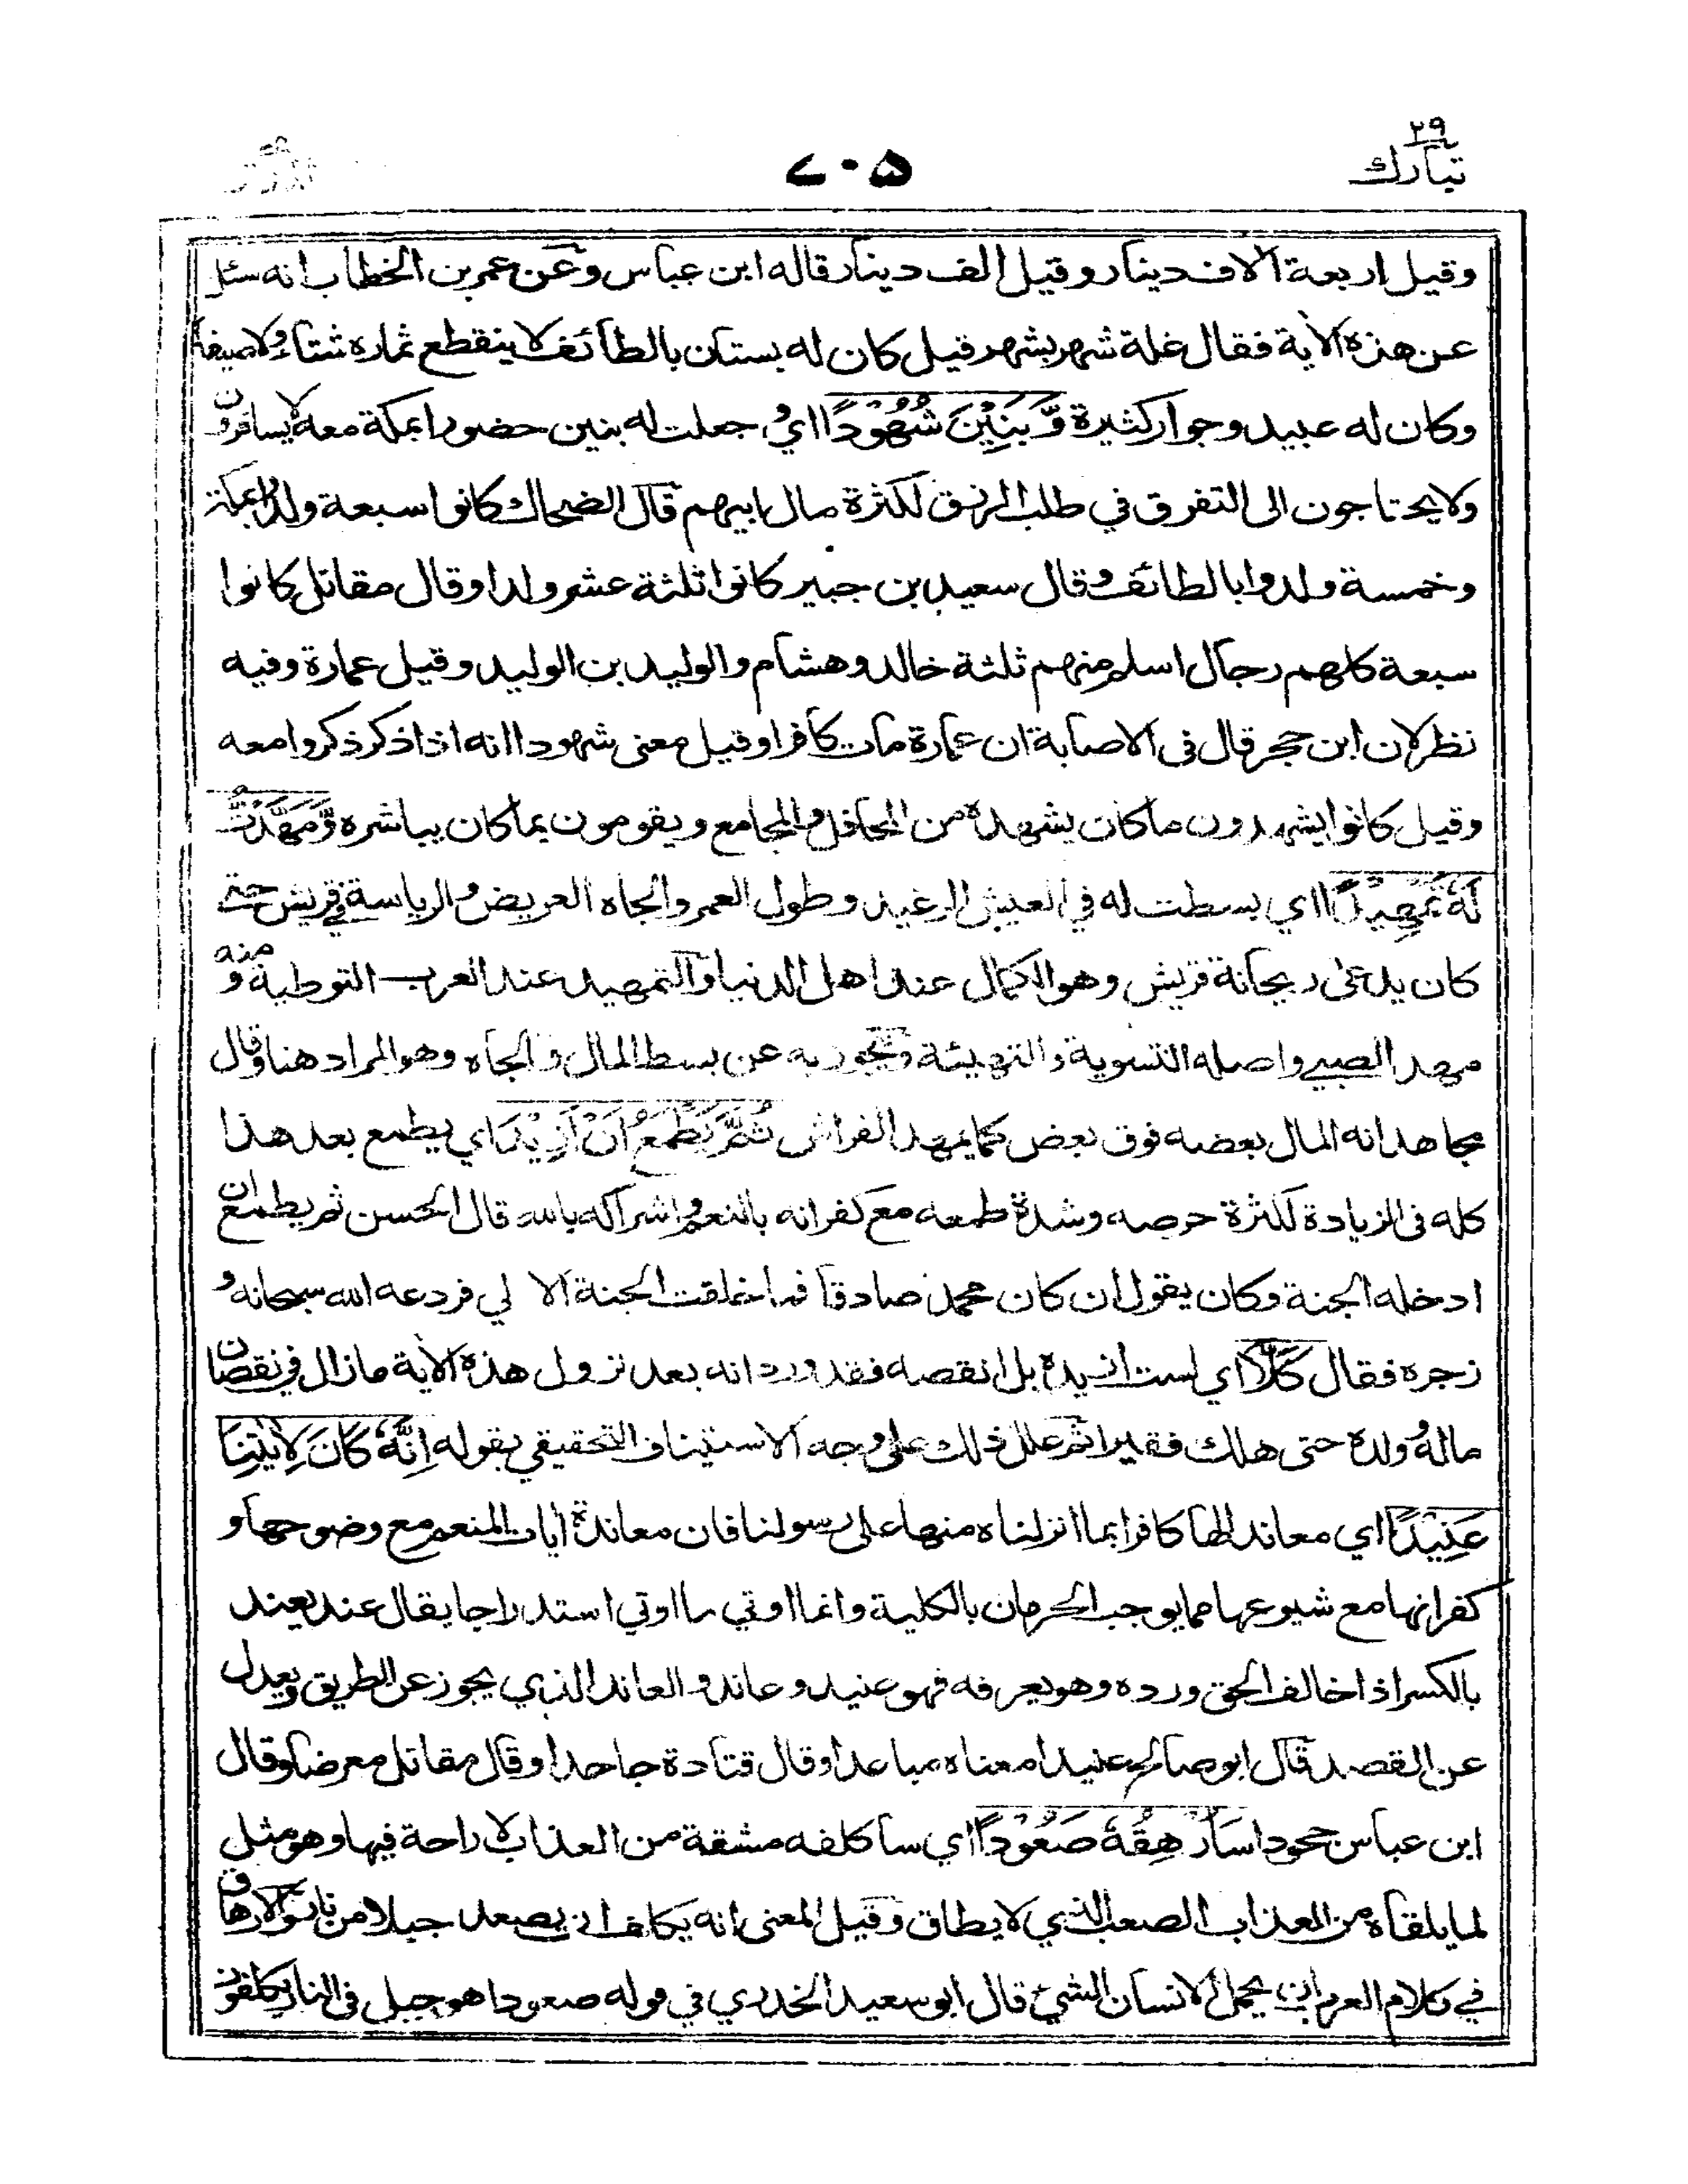 تبارك ٢٩
٧٠٥
وقيل اربعة الاف دينار وقيل الف دينار قاله ابن عباس وعن عمر بن الخطاب انه سئل
عن هذه الأية فقال غلة شهر بشهر قيل كان له بستان بالطائف لا ينقطع ثماره شتاء ولا صيفا
وكان له عبيد وجوار كثيرة وَّبَنِيْنَ شُهُوْدًا اي وجعلت له بنين حضورا بمكة معه لا يسافرون
ولا يحتاجون الى التفرق في طلب الرزق لكثرة مال ابيهم قال الضحاك كانوا سبعة ولدوا بمكة
وخمسة ولدوا بالطائف وقال سعيد بن جبير كانوا ثلثة عشر ولدا وقال مقاتل كانوا
سبعة كلهم رجال اسلم منهم ثلثة خالد وهشام والوليد بن الوليد وقيل عمارة وفيه
نظر لان ابن حجر قال فى الاصابة ان عمارة مات كافرا وقيل معنى شهودا انه اذا ذكر ذكروا معه
وقيل كانوا يشهدون ما كان يشهده من المحافل والمجامع ويقومون بما كان يباشره وَّمَهَّدْتُّ
لَهٗ تَمْهِيْدًا اي بسطت له في العيش الرغيد وطول العمر والجاه العريض والرياسة في قريش حتى
كان يدعى ريحانة قريش وهو الكمال عند اهل الدنيا والتمهيد عند العرب التوطية ومنه
مهد الصبي واصله التسوية والتهيئة وتجوز به عن بسط المال والجاه وهو المراد هنا وقال
مجاهد انه المال بعضه فوق بعض كما يمهد الفراش ثُمَّ يَطْمَعُ اَنْ اَزِيْدَ اي يطمع بعد هذا
كله فى الزيادة لكثرة حرصه وشدة طمعه مع كفرانه بالنعم واشراكه بالله قال الحسن ثم يطمع ان
ادخله الجنة وكان يقول ان كان محمد صادقا فما خلقت الجنة الا لي فردعه الله سبحانه و
زجره فقال كَلَّا اي لست ازيده بل انقصه فقد ورد انه بعد نزول هذه الأية ما زال في نقصان
ماله وولده حتى هلك فقيرا ثم علل ذلك على وجه الاستيناف التحقيقي بقوله اِنَّهٗ كَانَ لِاٰيٰتِنَا
عَنِيْدًا اي معاندا لها كافرا بما انزلناه منها على رسولنا فان معاندة أيات المنعم مع وضوحها و
كفرانها مع شيوعها مما يوجب الحرمان بالكلية وانما اوتي ما اوتي استدراجا يقال عند يعند
بالكسر اذا خالف الحق ورده وهو يعرفه فهو عنيد وعاند والعاند الذي يجوز عن الطريق ويعدل
عن القصد قال ابو صالح عنيدا معناه مباعدا وقال قتادة جاحدا وقال مقاتل معرضا وقال
ابن عباس جحودا سَاُرْهِقُهٗ صَعُوْدًا اي ساكلفه مشقة من العذاب لا راحة فيها وهو مثل
لما يلقاه من العذاب الصعب الذي لا يطاق وقيل المعنى انه يكلف ان يصعد جبلا من نار والارهاق
في كلام العرب ان يحمل الانسان الشيء قال ابو سعيد الخدري في قوله صعودا هو جبل فى النار يكلفون